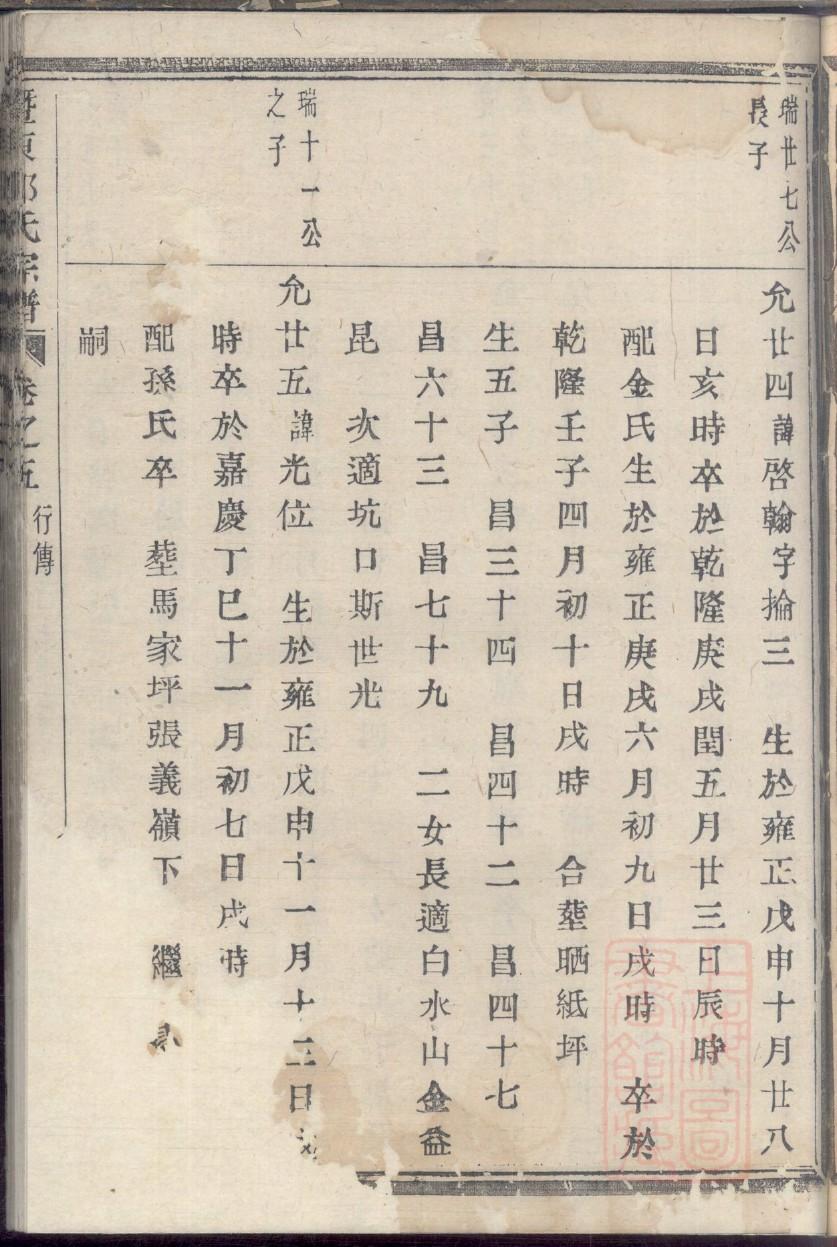 瑞廿七公
長子
允廿四諱啓翰字掄三 生於雍正戊申十月廿八
日亥時卒於乾隆庚戌閏五月廿三日辰時
配金氏生於雍正庚戌六月初九日戌時 卒於
乾隆壬子四月初十日戌時 合塟晒紙坪
生五子 昌三十四 昌四十二 昌四十七
昌六十三 昌七十九 二女長適白水山金益
昆 次適坑口斯世光
瑞十一公
之子
允廿五諱光位 生於雍正戊申十一月十二日
時卒於嘉慶丁巳十一月初七日戌時
配孫氏卒 塟馬家坪張義嶺下 繼
嗣
氏宗譜 卷之五 行傳